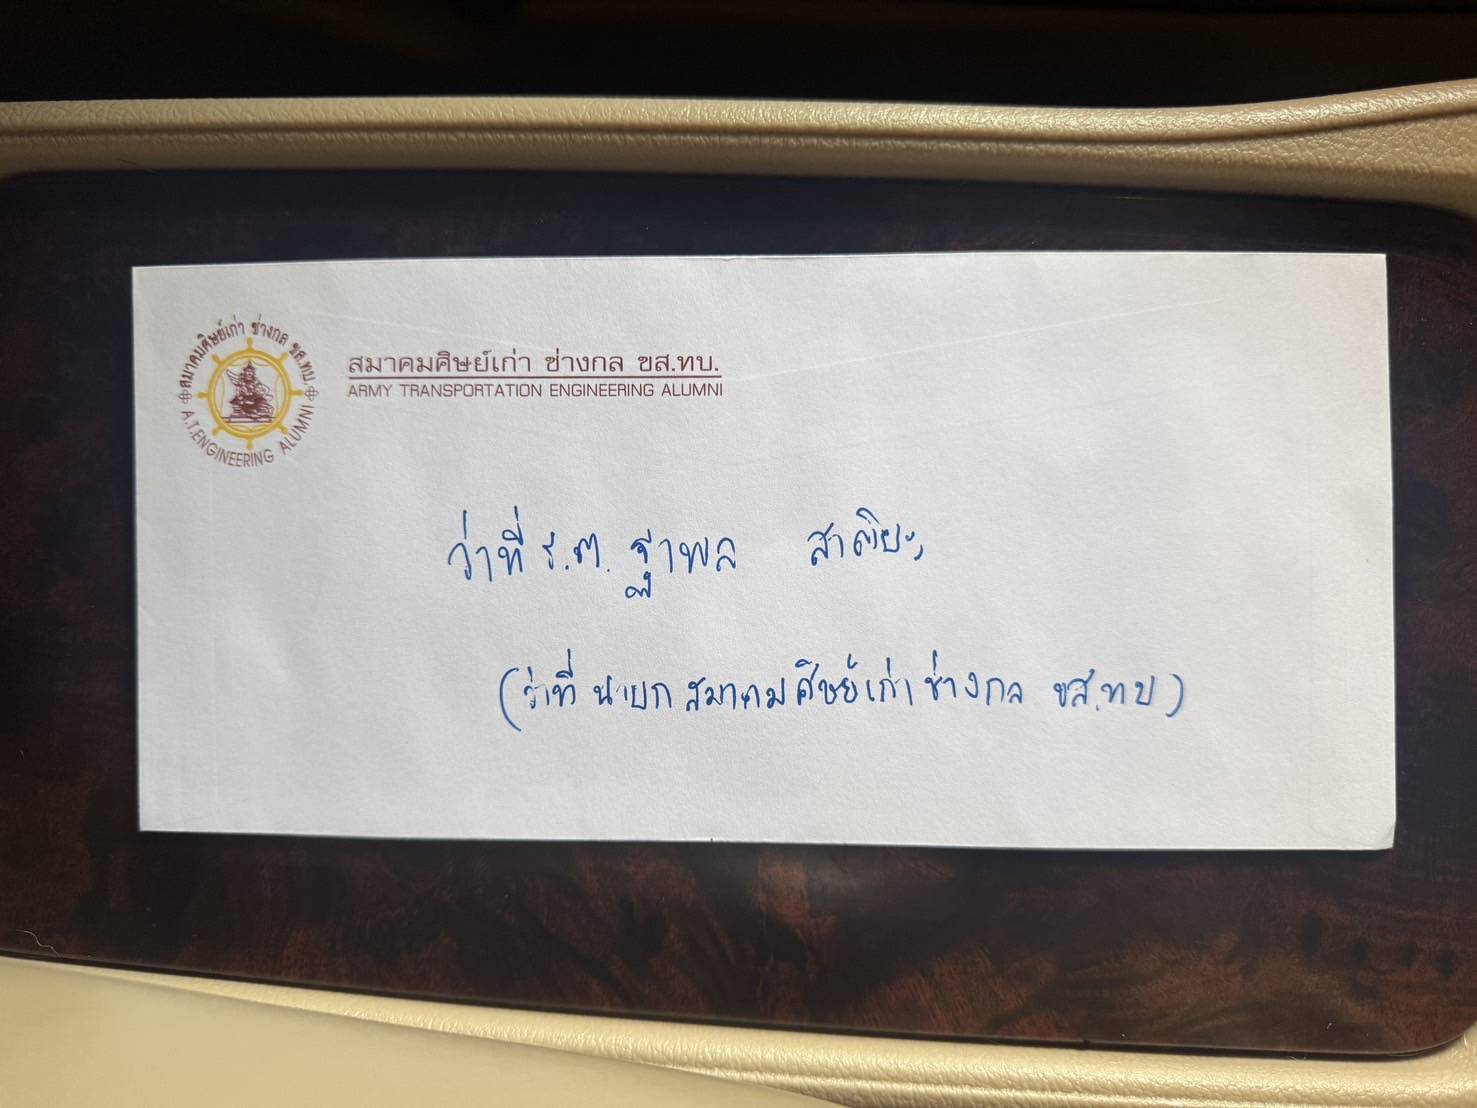 สมาคมศิษย์เก่า ช่างกล ขส.ทบ.
A.T.ENGINEERING ALUMNI
สมาคมศิษย์เก่า ช่างกล ขส.ทบ.
ARMY TRANSPORTATION ENGINEERING ALUMNI
ว่าที่ ร.ต. ฐาพล สาติยะ
(ว่าที่ นายก สมาคมศิษย์เก่าช่างกล ขส.ทบ)